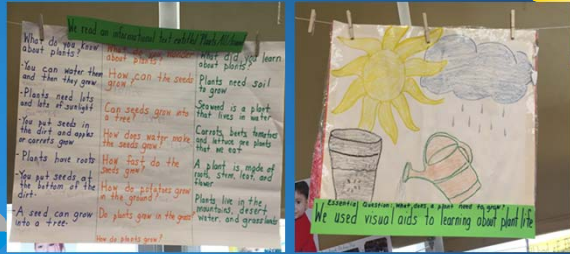 We read an informational text entitled Plants All Around
What do you know
about plants?
-You can water them
and then they grow
-Plants need lots
and lots of sunlight
-You put seeds in
the dirt and apples
or carrots grow
-Plants have roots
-You put seeds at
the bottom of the
dirt-
-A seed can grow
into a tree-
about plants?
How can the seeds
grow?
Can seeds grow into
a tree?
How does water make
the seeds grow?
How fast do the
seeds grow?
How do potatoes grow
in the ground?
Do plants grow in the grass?
How do plants grow?
What did you learn
about plants?
Plants need soil
to grow
Seaweed is a plant
that lives in water
Carrots, beets, tomatoes
and lettuce are plants
that we eat
A plant is made of
roots, stem, leaf, and
flower
Plants live in the
mountains, desert,
water, and grasslands
Essential Question: What does a plant need to grow?
We used visual aids to learning about plant life